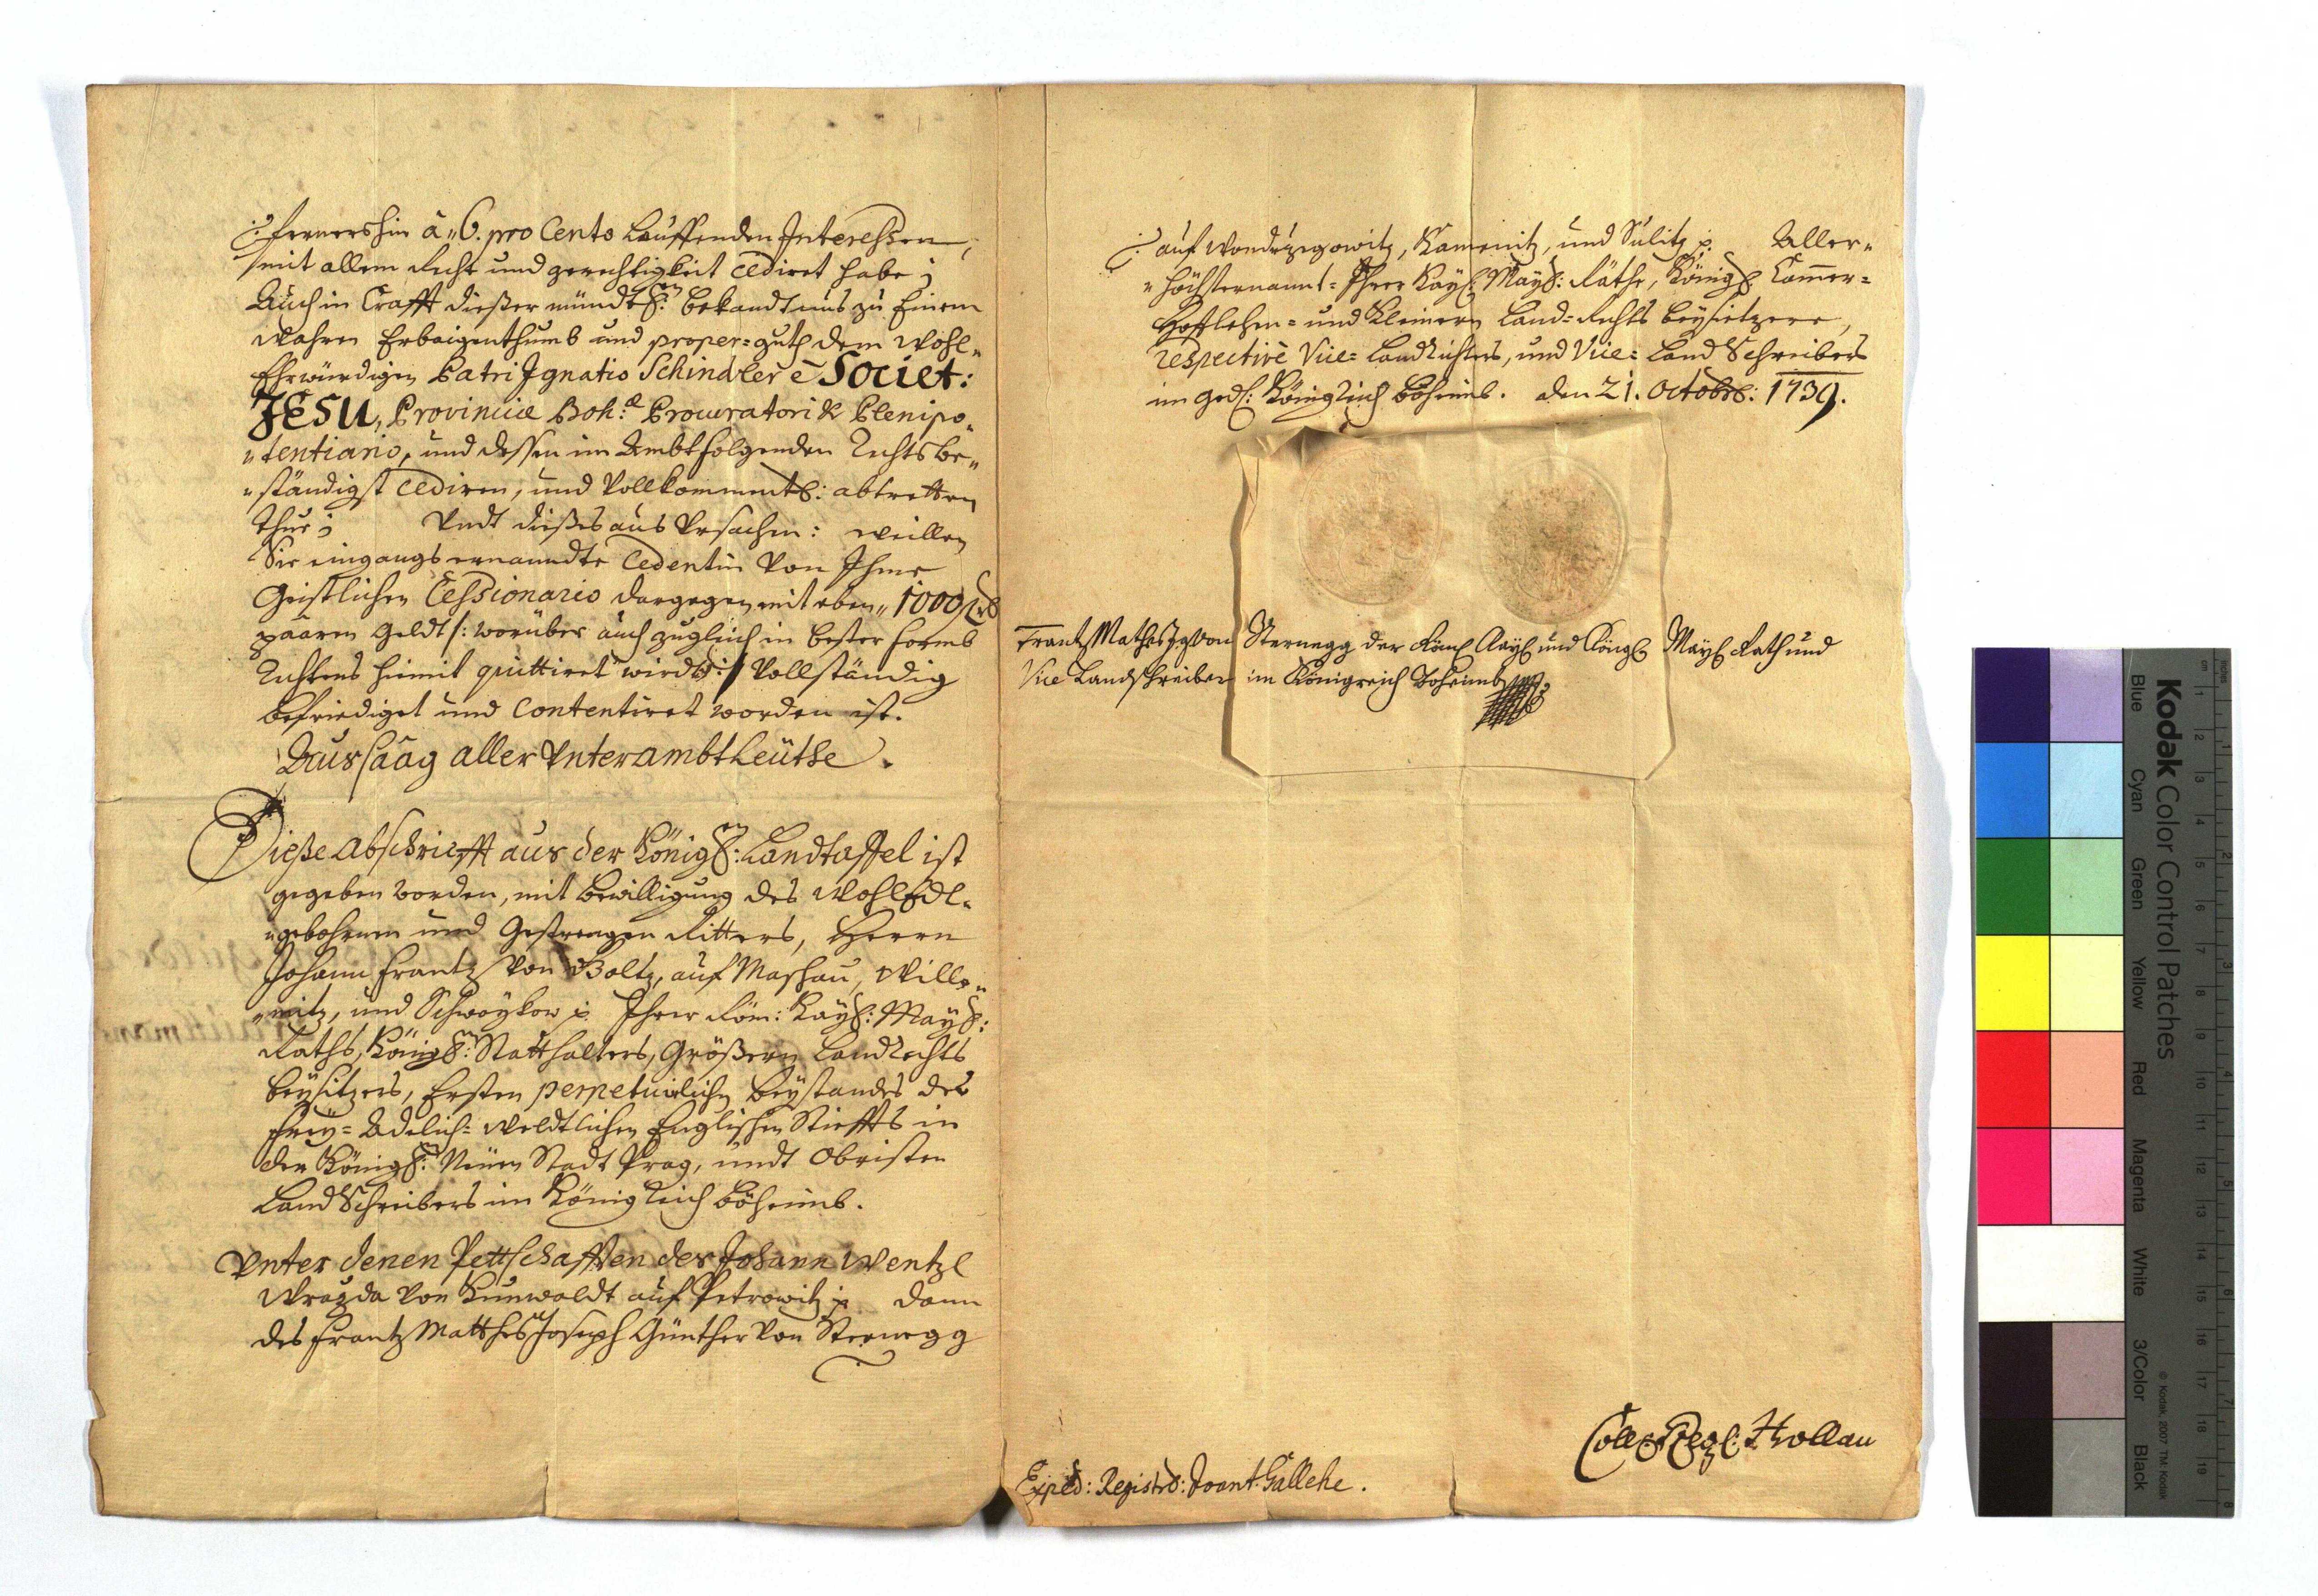 fernershin à 6. pro Cento Lauffenden Interessen,
mit allem Recht und gerechtigkeit cediret habe;
Auch in Crafft dießer mündtl: bekandtnus zu Einem
wahren Erbaigenthumb und proper=guth dem Wohl„
Ehrwürdigen Patri Ignatio Schindler è Societ:
JESU, Provinciæ Boh:æ Procuratori & Plenipo„
„tentiario, und dessen im Ambt folgenden Rechtsbe„
„ständigst cediren, und Vollkommentl: abtretten
thue; Vndt dießes aus Vrsachen: weillen
Sie eingangs ernanndte Cedentin von Ihme
Geistlichen Cessionario dargegen mit eben „1000
paaren Geldt /: worüber auch zugleich in bester formb
Rechtens hiemit quittiret wird :/ Vollständig
befriediget und Contentiret worden ist.
Aussaag aller Vnterambtleüthe.
Dieße Abschriefft aus der Königl:en Landtaffel ist
gegeben worden, mit bewilligung des WohlEdl„
„gebohrnen und Gestrengen Ritters, Herrn
Johann Frantz von Goltz, auf Maschau, Wille„
„mitz, und Schwoykow p. Ihrer Röm: Kayl: Mayl:
Raths, Königl:en Statthalters, Größern Landrechts
beysitzers, Ersten perpetuirlichen beystandes des
frey= Adelich= weldtlichen Englischen Stieffts in
der Königl:en Neüen Stadt Prag, undt Obristen
LandSchreibers im Königreich Böheimb.
Vnter denen Pettschafften des Johann Wentzl
Wrazda von Kunwaldt auf Petrowitz p. dann
des Frantz Matthes Joseph Günther von Sternegg
auf Wondrzegowitz, Kamenitz, und Sulitz p. Aller„
„höchsternannt= Ihrer Kayl: Mayl: Räthe, Königl: Cammer=
Hofflehen= und Kleinern Land=Rechts beysitzere,
respectivè Vice= Landrichters, und Vice= Land Schreibers
im gedl: Königreich Böheimb. den 21. Octobr: 1739.
Frantz Mathes von Sternegg der Röml Kayl und Köngl Mayl Rath und
Vice Landschreiber im Königreich Boheimb
Hollau
Exped: Registr: Gallehe.